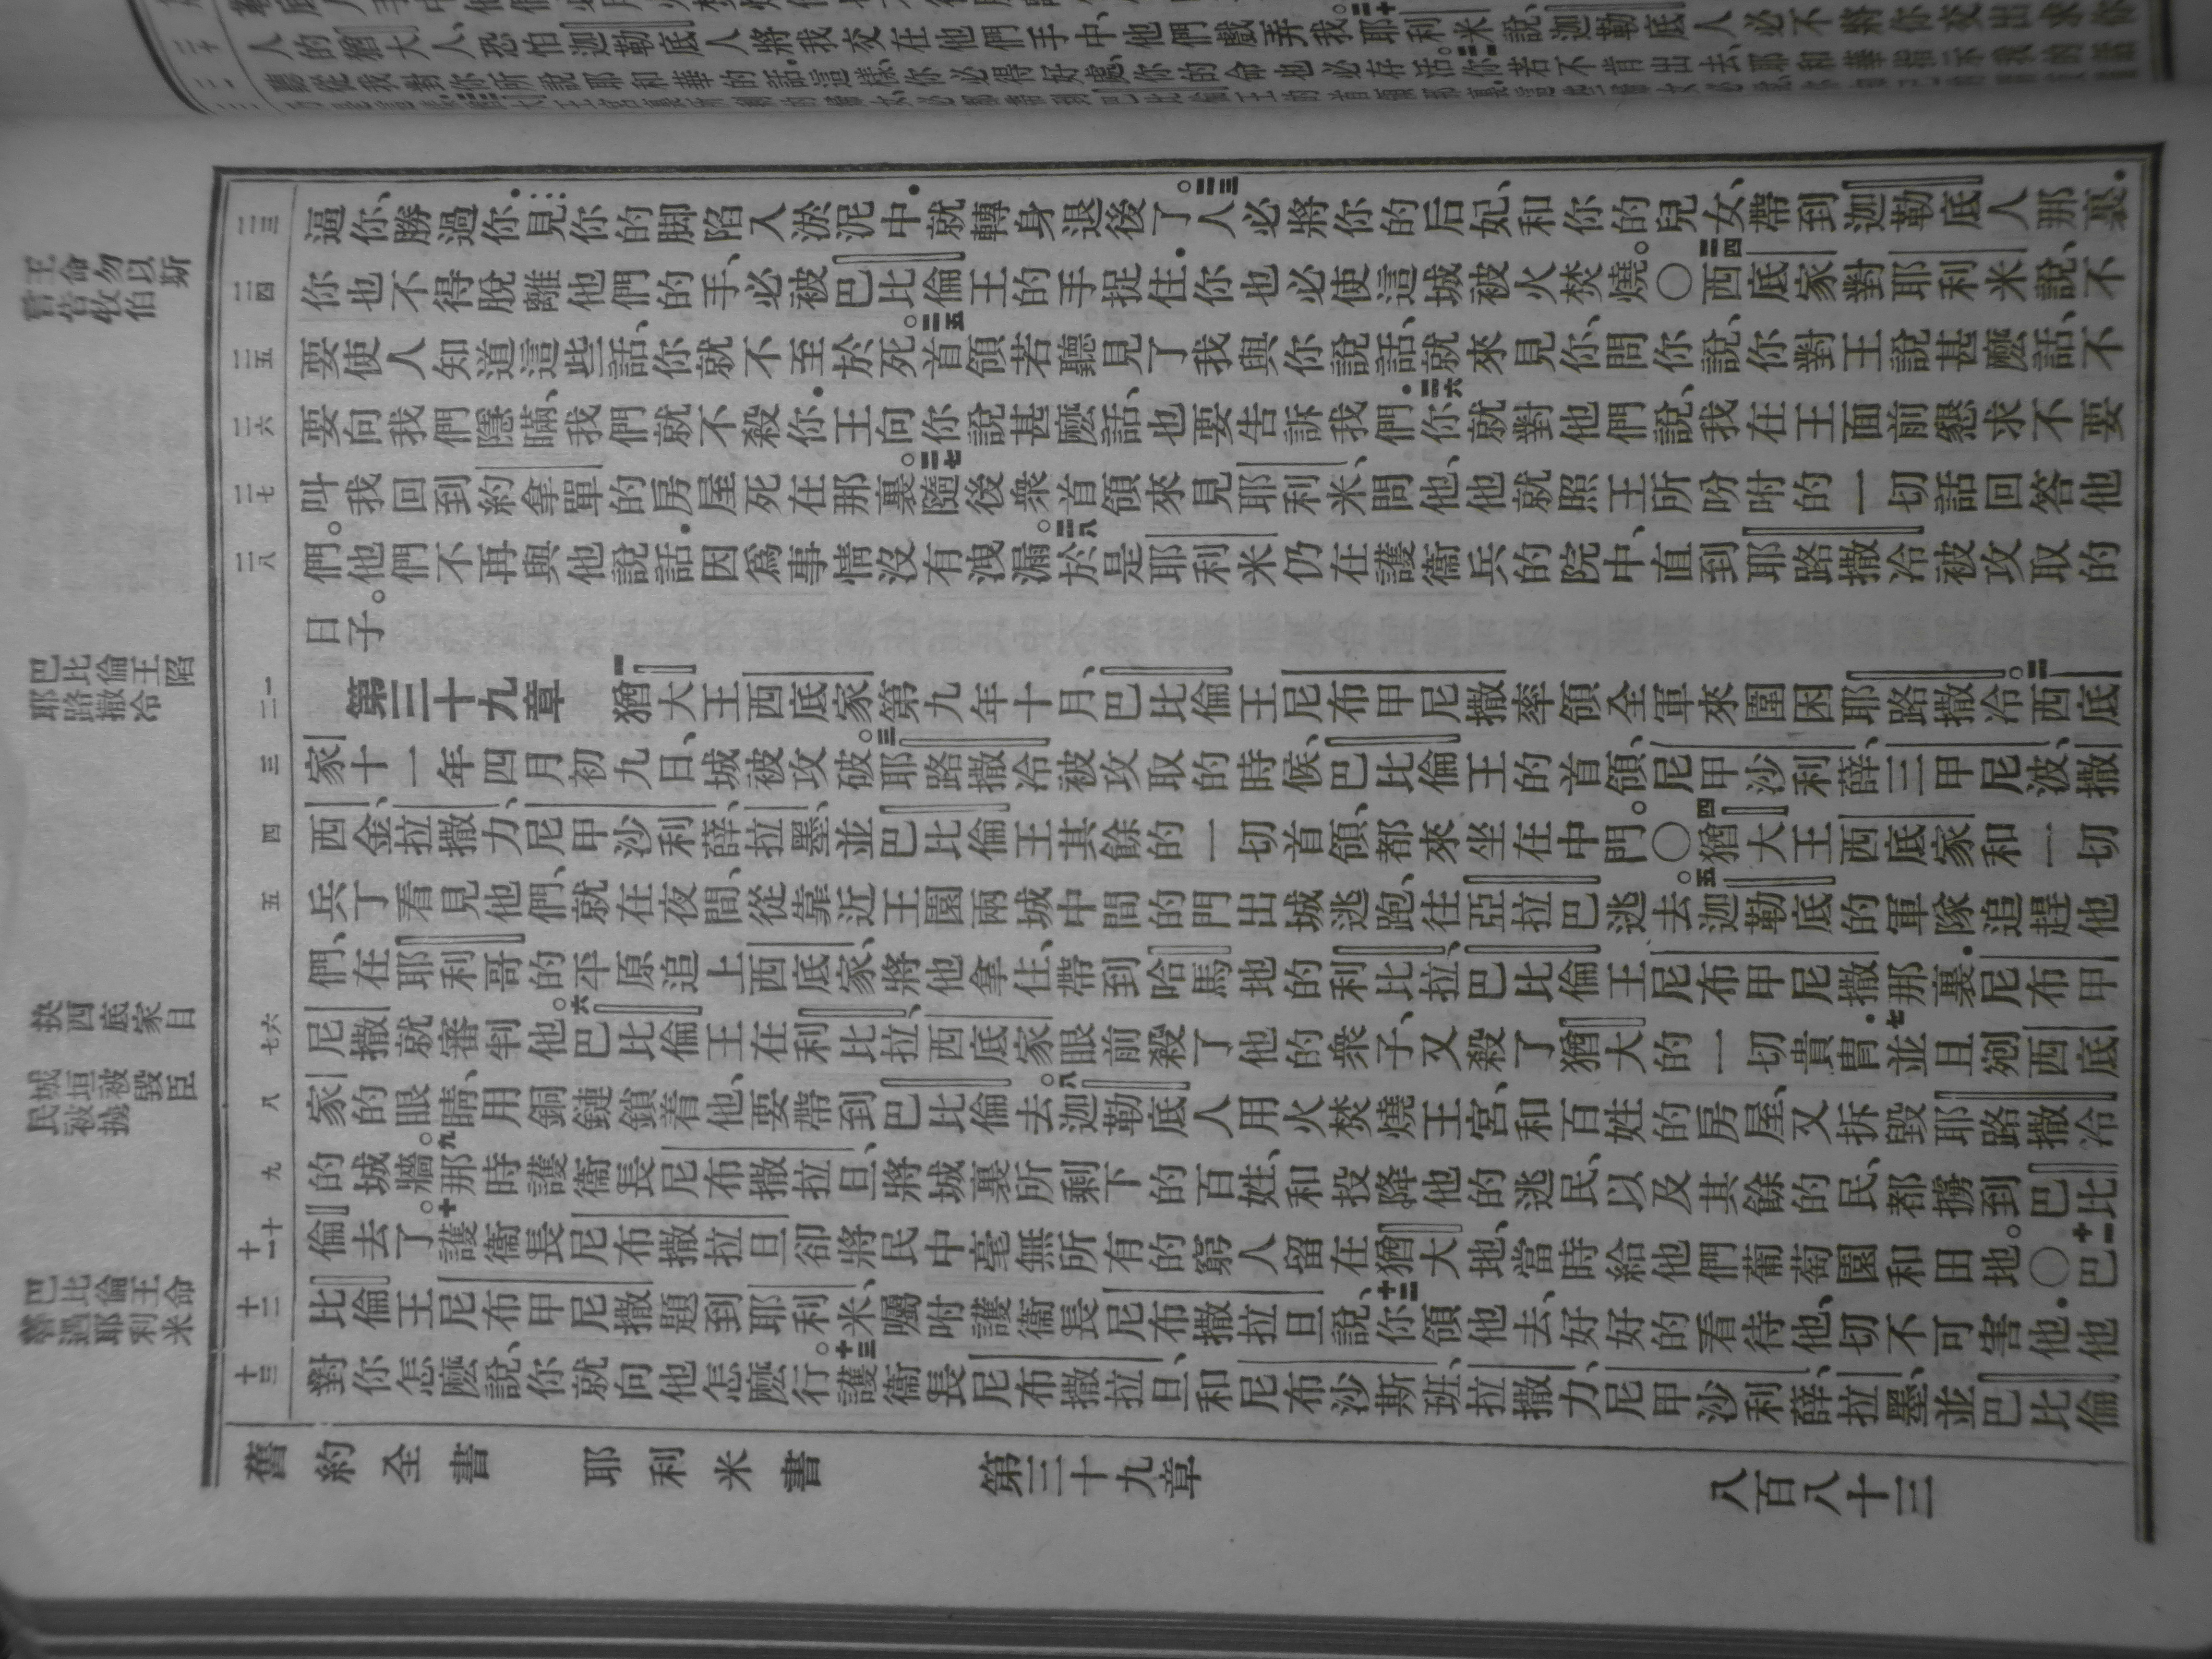 人的猶大人恐怕迦勒底人將我交在他們手中、他們戲弄我。三十耶利米說、迦勒底人必不將你交出求你
聽從我對你所說耶和華的話這樣、你必得好處、你的命也必存活。三一你若不肯出去、耶和華指示我的話
逼你、勝過你．見你的脚陷入淤泥中．就轉身退後了。三三人必將你的后妃、和你的兒女、帶到迦勒底人那裏．
你也不得脫離他們的手、必被巴比倫王的手捉住．你也必使這城被火焚燒。○三四西底家對耶利米說、不
要使人知道這些話、你就不至於死。三五首領若聽見了我與你說話、就來見你、問你說、你對王說甚麽話、不
要向我們隱瞞、我們就不殺你．王向你說甚麽話、也要告訴我們．三六你就對他們說、我在王面前懇求不要
叫我回到約拿單的房屋死在那裏。三七隨後衆首領來見耶利米、問他、他就照王所吩咐的一切話回答他
們。他們不再與他說話．因爲事情沒有洩漏。三八於是耶利米仍在護衞兵的院中、直到耶路撒冷被攻取的
日子。
第三十九章　一猶大王西底家第九年十月、巴比倫王尼布甲尼撒率領全軍來圍困耶路撒冷。二西底
家十一年四月初九日、城被攻破。三耶路撒冷被攻取的時候、巴比倫王的首領、尼甲沙利薛、三甲尼波、撒
西金、拉撒力、尼甲沙利薛、拉墨、並巴比倫王其餘的一切首領、都來坐在中門。○四猶大王西底家和一切
兵丁看見他們、就在夜間、從靠近王園兩城中間的門出城逃跑、往亞拉巴逃去。五迦勒底的軍隊追趕他
們、在耶利哥的平原追上西底家、將他拿住、帶到哈馬地的利比拉、巴比倫王尼布甲尼撒那裏．尼布甲
尼撒就審判他。六巴比倫王在利比拉、西底家眼前殺了他的衆子、又殺了猶大的一切貴冑．七並且剜西底
家的眼睛、用銅鏈鎖着他、要帶到巴比倫去。八迦勒底人用火焚燒王宮、和百姓的房屋、又拆毀耶路撒冷
的城牆。九那時護衞長尼布撒拉旦、將城裏所剩下的百姓、和投降他的逃民、以及其餘的民、都擄到巴比
倫去了。十護衞長尼布撒拉旦卻將民中毫無所有的窮人留在猶大地、當時給他們葡萄園和田地。○十一巴
比倫王尼布甲尼撒題到耶利米、囑咐護衞長尼布撒拉旦說、十二你領他去、好好的看待他、切不可害他．他
對你怎麽說、你就向他怎麽行。十三護衞長尼布撒拉旦、和尼布沙斯班、拉撒力、尼甲沙利薛、拉墨、並巴比倫
舊約全書　耶利米書　第三十九章　八百八十三
三三
三四
三五
三六
三七
三八
一二
三
四
五
六七
八
九
十十一
十二
十三
王命勿以斯
言告牧伯
巴比倫王陷
耶路撒冷
抉西底家目
城垣被毀臣
民被擄
巴比倫王命
善遇耶利米